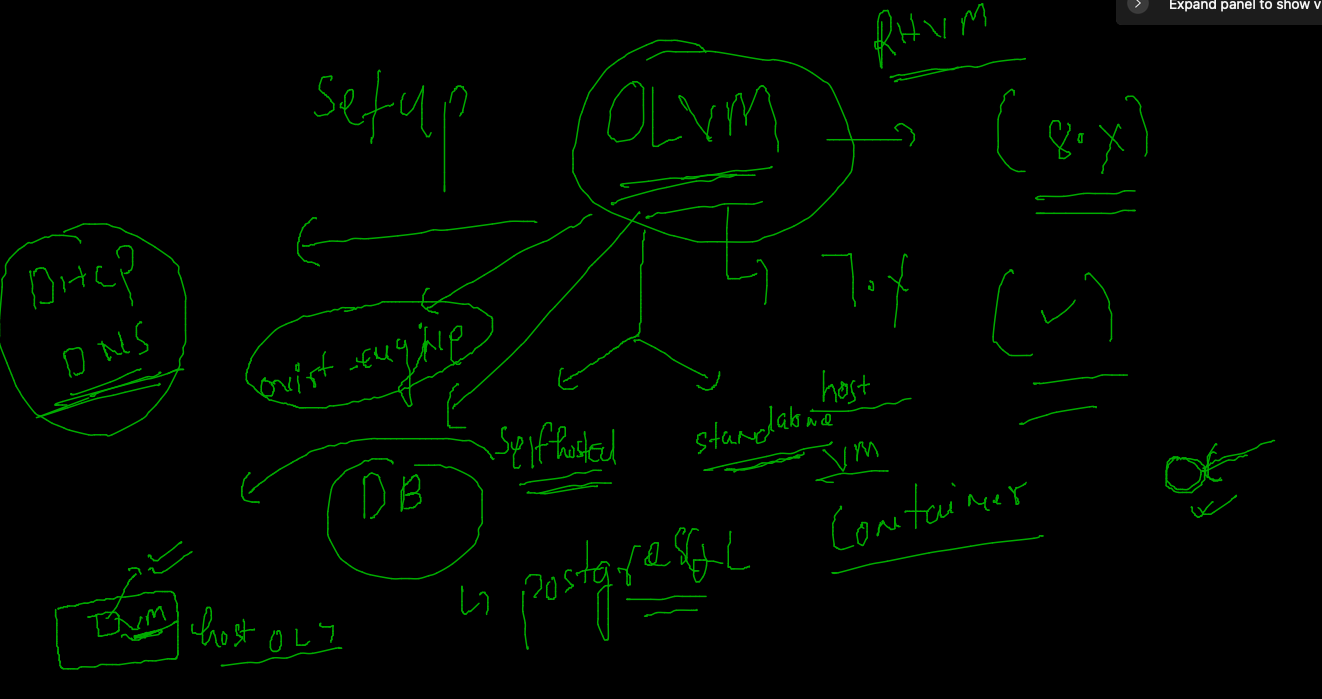 Expand panel to show v
RHVM
Setup
OLVM
(8.x)
DHCP
DNS
7.x
ovirt-engine
host
standalone
Selfhosted
VM
DB
Container
postgresqL
VM
host OL7